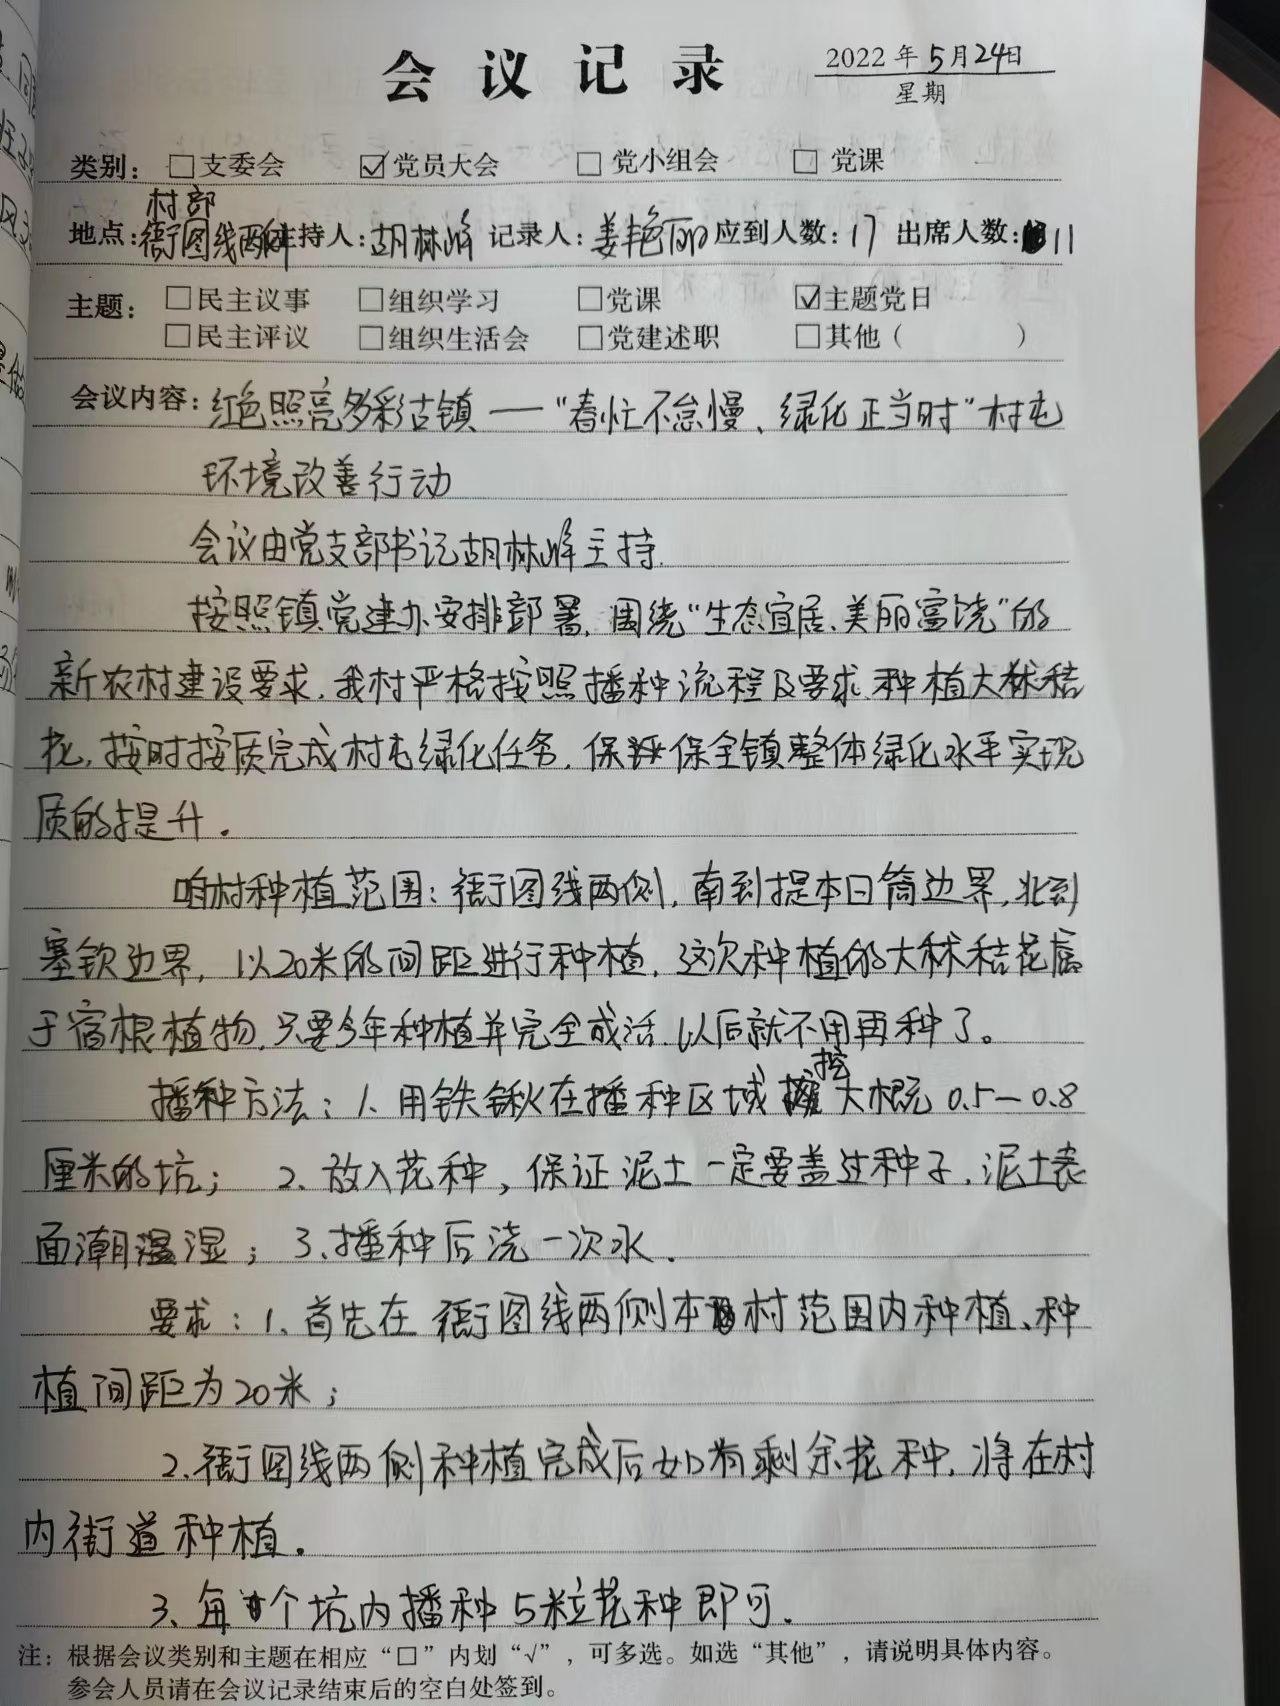 会议记录
2022年5月24日
星期
类别：□支委会 ☑党员大会 □党小组会 □党课
村部
地点：衙图线两侧 主持人：胡林峰 记录人：姜艳丽 应到人数：17 出席人数：11
主题：□民主议事 □组织学习 □党课 ☑主题党日
□民主评议 □组织生活会 □党建述职 □其他（ ）
会议内容：红色照亮多彩古镇——“春忙不怠慢、绿化正当时”村屯
环境改善行动
会议由党支部书记胡林峰主持.
按照镇党建办安排部署，围绕“生态宜居、美丽富饶”的
新农村建设要求，我村严格按照播种流程及要求种植大秫秸
花，按时按质完成村屯绿化任务，保 保全镇整体绿化水平实现
质的提升.
咱村种植范围：衙图线两侧，南到提本日筒边界，北到
塞钦边界，以20米的间距进行种植，这次种植的大秫秸花属
于宿根植物，只要今年种植并完全成活，以后就不用再种了。
挖
播种方法：1、用铁锹在播种区域 大概 0.5－0.8
厘米的坑； 2、放入花种，保证泥土一定要盖过种子，泥土表
面潮湿；3、播种后浇一次水.
要求：1、首先在衙图线两侧本村范围内种植、种
植间距为20米；
2、衙图线两侧种植完成后如有剩余花种，将在村
内街道种植.
3、每个坑内播种5粒花种即可.
注：根据会议类别和主题在相应“□”内划“√”，可多选。如选“其他”，请说明具体内容。
参会人员请在会议记录结束后的空白处签到。